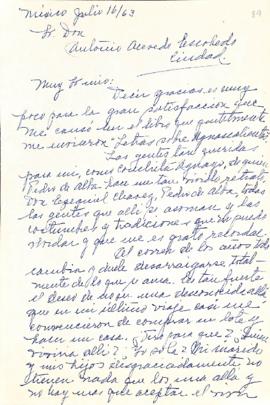 México Julio 16/63
89
Sr. Don
Antonio Acevedo Escobedo
Ciudad.
Muy Sr mio:
Decir gracias, es muy
poco para la gran satisfacción que
me causó ver el libro que gentilmente
me enviaron "Letras sobre Aguascalientes"
Las gentes tan queridas
para mi, como Conchita Aguayo, de quien
Pedro de Alba hace un tan retrato,
Don Ezequiel Chavez, Pedro de Alba, todas
las gentes que alli se asoman y las
costumbres y tradiciones que no puedo
olvidar y que me es grato recordar
Al correr de los años todo
cambia y duele desarraigarse total-
mente de lo que se ama. Es tan fuerte
el deseo de seguir una desconocida allá
que en mi último viaje casi me
convencieron de comprar un lote y
hacer un casa. ¿Pero para que? ¿Quien
viviria alli? ¿Yo sola? Mi marido
y mis hijos desgraciadamente no
tienen nada que los una allá y
no hay mas que aceptar el